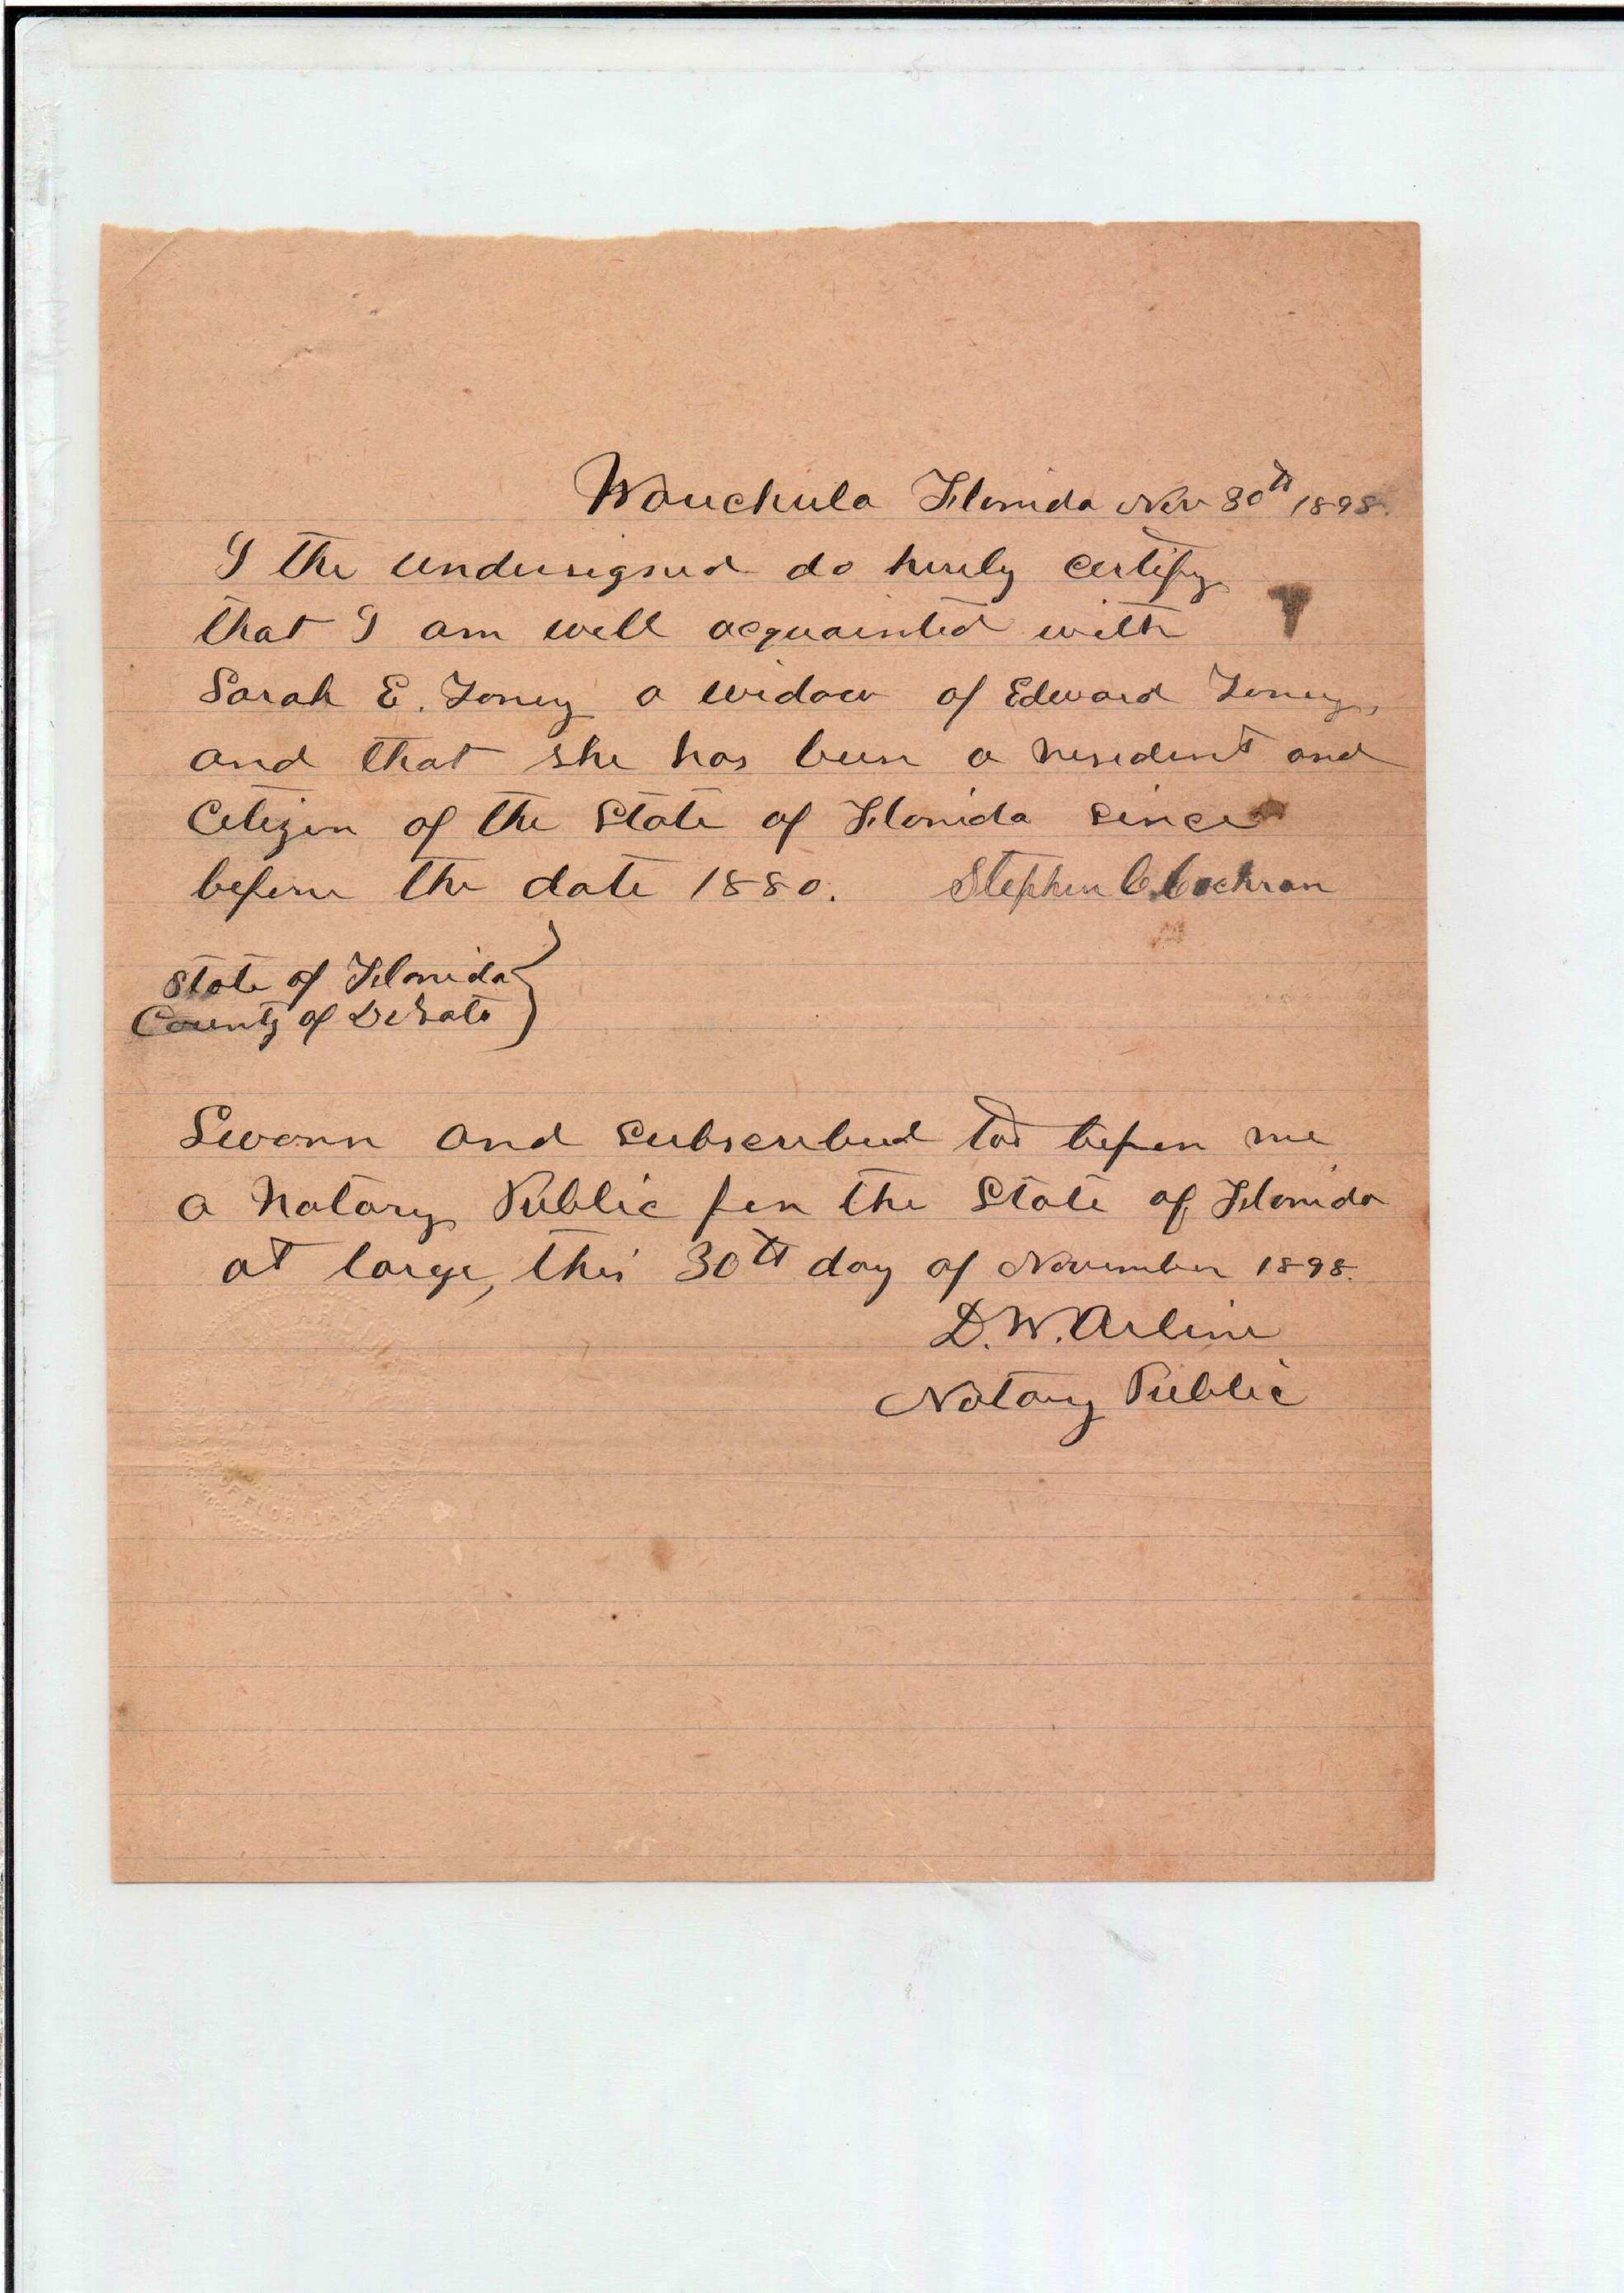 Wauchula Florida Nov 30th 1898.
I the undersigned do hereby certify
that I am well acquainted with
Sarah E. Toney a widow of Edward Toney,
and that she has been a resident and
Citizen of the State of Florida since
before the date 1880. Stephen C Cochran
State of Florida
County of DeSoto
Sworn and subscribed to before me
a Notary Public for the State of Florida
at large, this 30th day of November 1898.
D. W. Arline
Notary Public
OF FLORIDA